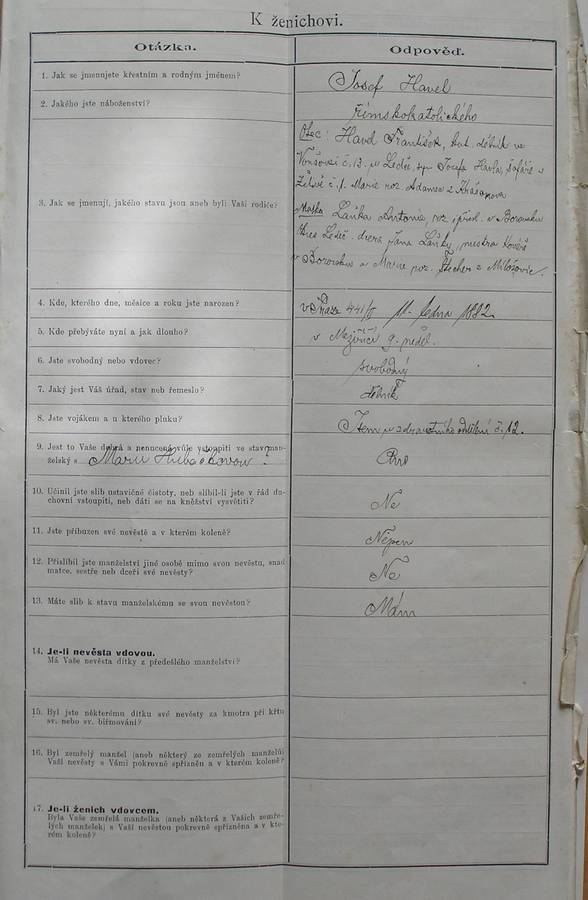 K ženichovi.
Otázka.
Odpověď.
1. Jak se jmenujete křestním a rodným jménem?
Josef Havel
2. Jakého jste náboženství?
římskokatolického
3. Jak se jmenují, jakého stavu jsou aneb byli Vaši rodiče?
Otec: Havel František,
č. 13. u Ledče, syn Josefa Havla,
č. 1. Marie roz. Adamec z
Matka Laňka Antonie, roz. v Borovsku
okres Ledeč. dcera Jana Laňky, mistra
v Borovsku a Marie roz. z
4. Kde, kterého dne, měsíce a roku jste narozen?
v Praze 441/II 11. ledna 1882.
5. Kde přebýváte nyní a jak dlouho?
v Meziříčí 9. neděl.
6. Jste svobodný nebo vdovec?
svobodný
7. Jaký jest Váš úřad, stav neb řemeslo?
8. Jste vojákem a u kterého pluku?
Jsem u zdravotního oddělení č. 12.
9. Jest to Vaše dobrá a nenucená vůle vstoupiti ve stav man-
želský s Marií ?
Ano
10. Učinil jste slib ustavičné čistoty, neb slíbil-li jste v řád du-
chovní vstoupiti, neb dáti se na kněžství vysvětiti?
Ne
11. Jste příbuzen své nevěstě a v kterém koleně?
Nejsem
12. Přislíbil jste manželství jiné osobě mimo svou nevěstu, snad
matce, sestře neb dceři své nevěsty?
Ne
13. Máte slib k stavu manželskému se svou nevěstou?
Mám
14. Je-li nevěsta vdovou.
Má Vaše nevěsta dítky z předešlého manželství?
15. Byl jste některému dítku své nevěsty za kmotra při křtu
sv. nebo sv. biřmování?
16. Byl zemřelý manžel (aneb některý ze zemřelých manželů)
Vaší nevěsty s Vámi pokrevně spřízněn a v kterém koleně?
17. Je-li ženich vdovcem.
Byla Vaše zemřelá manželka (aneb některá z Vašich zemře-
lých manželek) s Vaší nevěstou pokrevně spřízněna a v kte-
rém koleně?